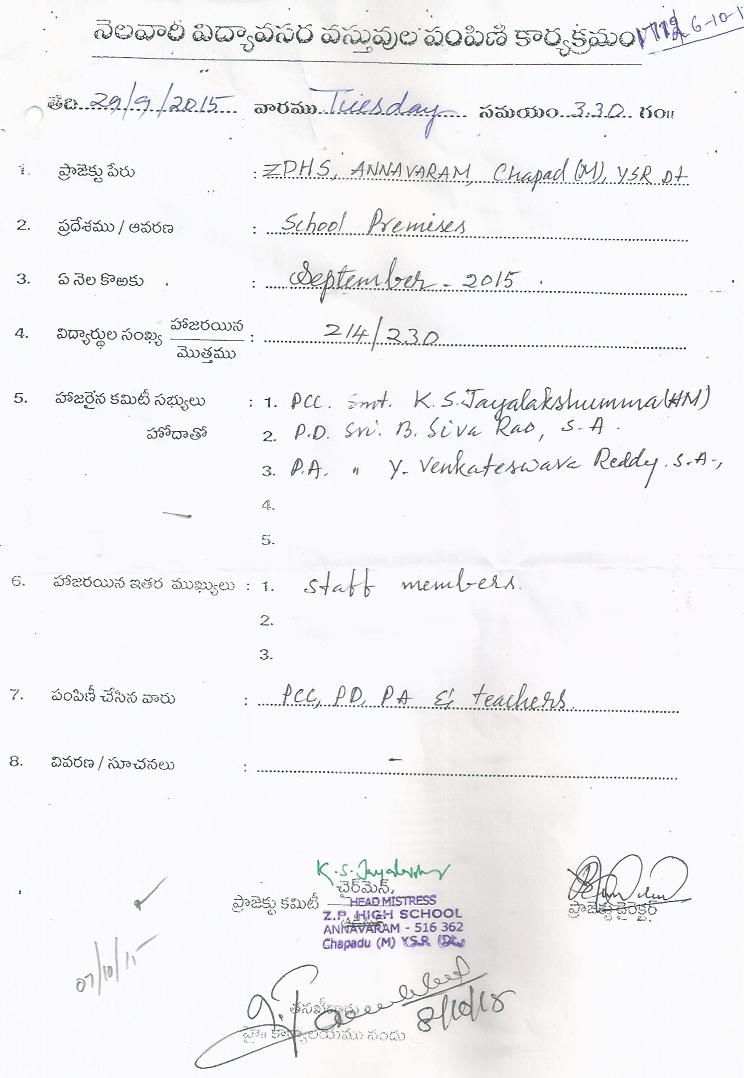 నెలవారీ విద్యావసర వస్తువుల పంపిణీ కార్యక్రమం
6-10-1
తేది. 29/9/2015 వారము Tuesday సమయం. 3.30 గం॥
1. ప్రాజెక్టు పేరు : ZPHS, ANNAVARAM, Chapad (M), YSR Dt
2. ప్రదేశము / ఆవరణ : School Premises
3. ఏ నెల కొఱకు : September - 2015
4. విద్యార్థుల సంఖ్య హాజరయిన / మొత్తము : 214/230
5. హాజరైన కమిటీ సభ్యులు : 1. PCC. Smt. K.S. Jayalakshumma (HM)
హోదాతో 2. P.D. Sri. B. Siva Rao, S.A.
3. P.A. " Y. Venkateswara Reddy. S.A.,
4.
5.
6. హాజరయిన ఇతర ముఖ్యులు : 1. Staff members.
2.
3.
7. పంపిణీ చేసిన వారు : PCC, PD, PA & teachers.
8. వివరణ / సూచనలు : -
K.S. Jayalakshu
ఛైర్‌మెన్,
ప్రాజెక్టు కమిటీ
HEAD MISTRESS
Z.P. HIGH SCHOOL
ANNAVARAM - 516 362
Chapadu (M) Y.S.R (Dt.)
ప్రాజెక్టు డైరెక్టర్
07/10/15
తనఖీదారు
8/10/15
కార్యాలయము నందు